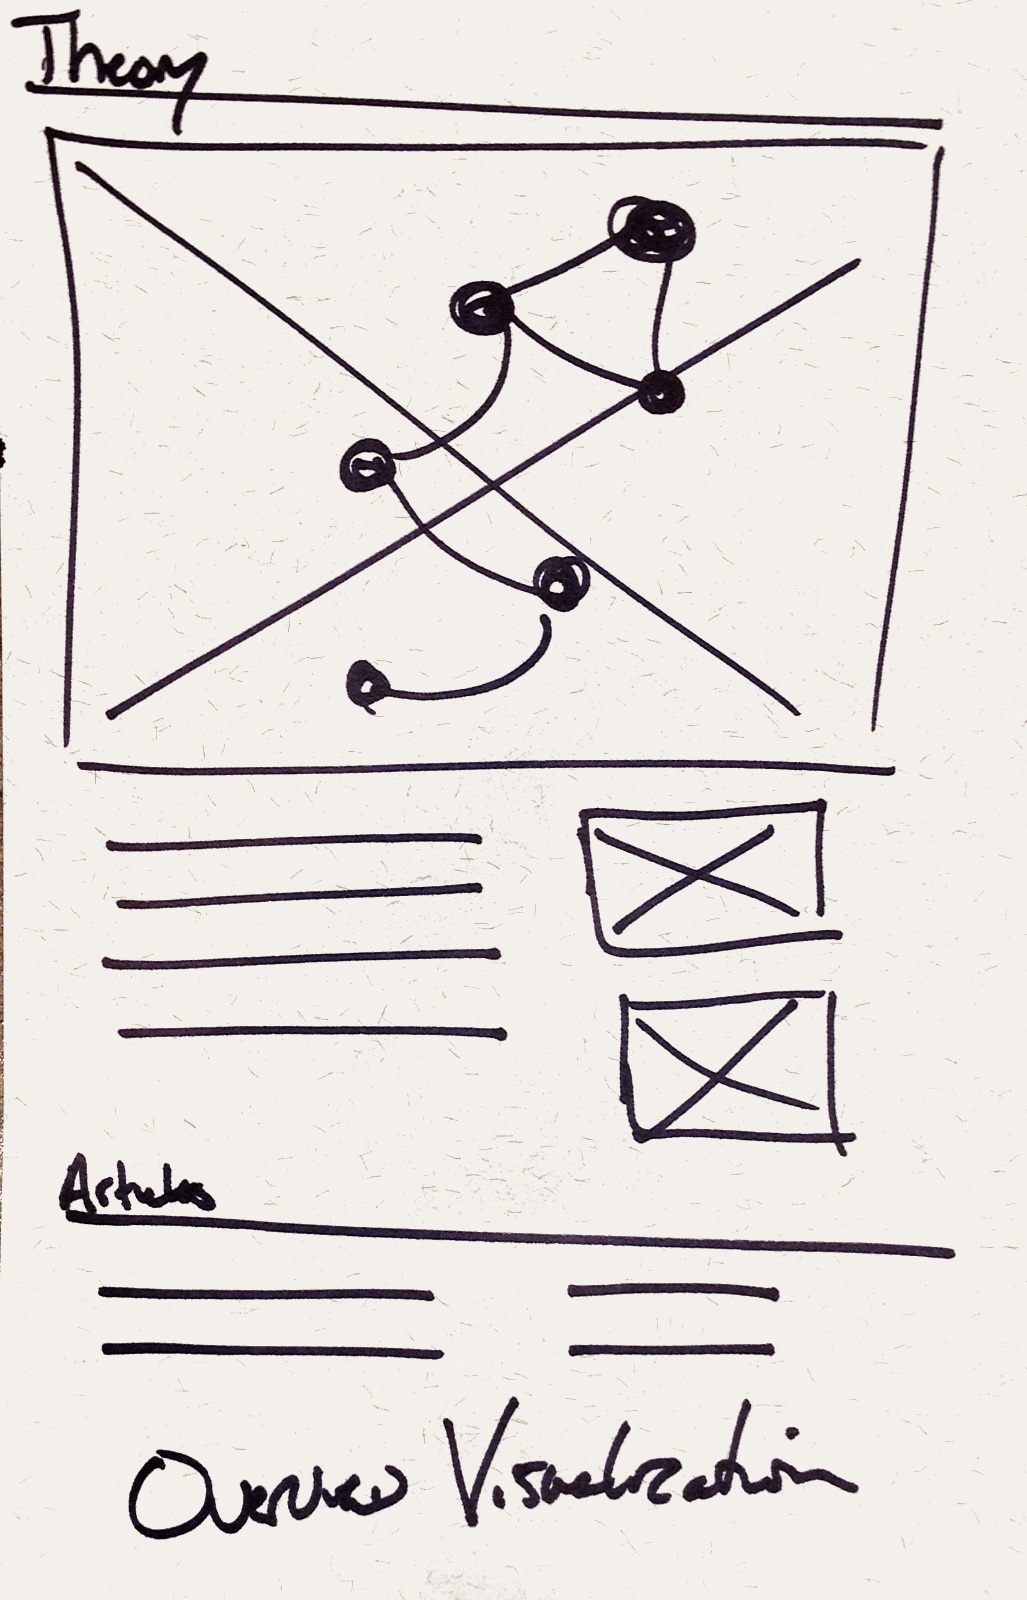 Theory
Articles
Overview Visualization